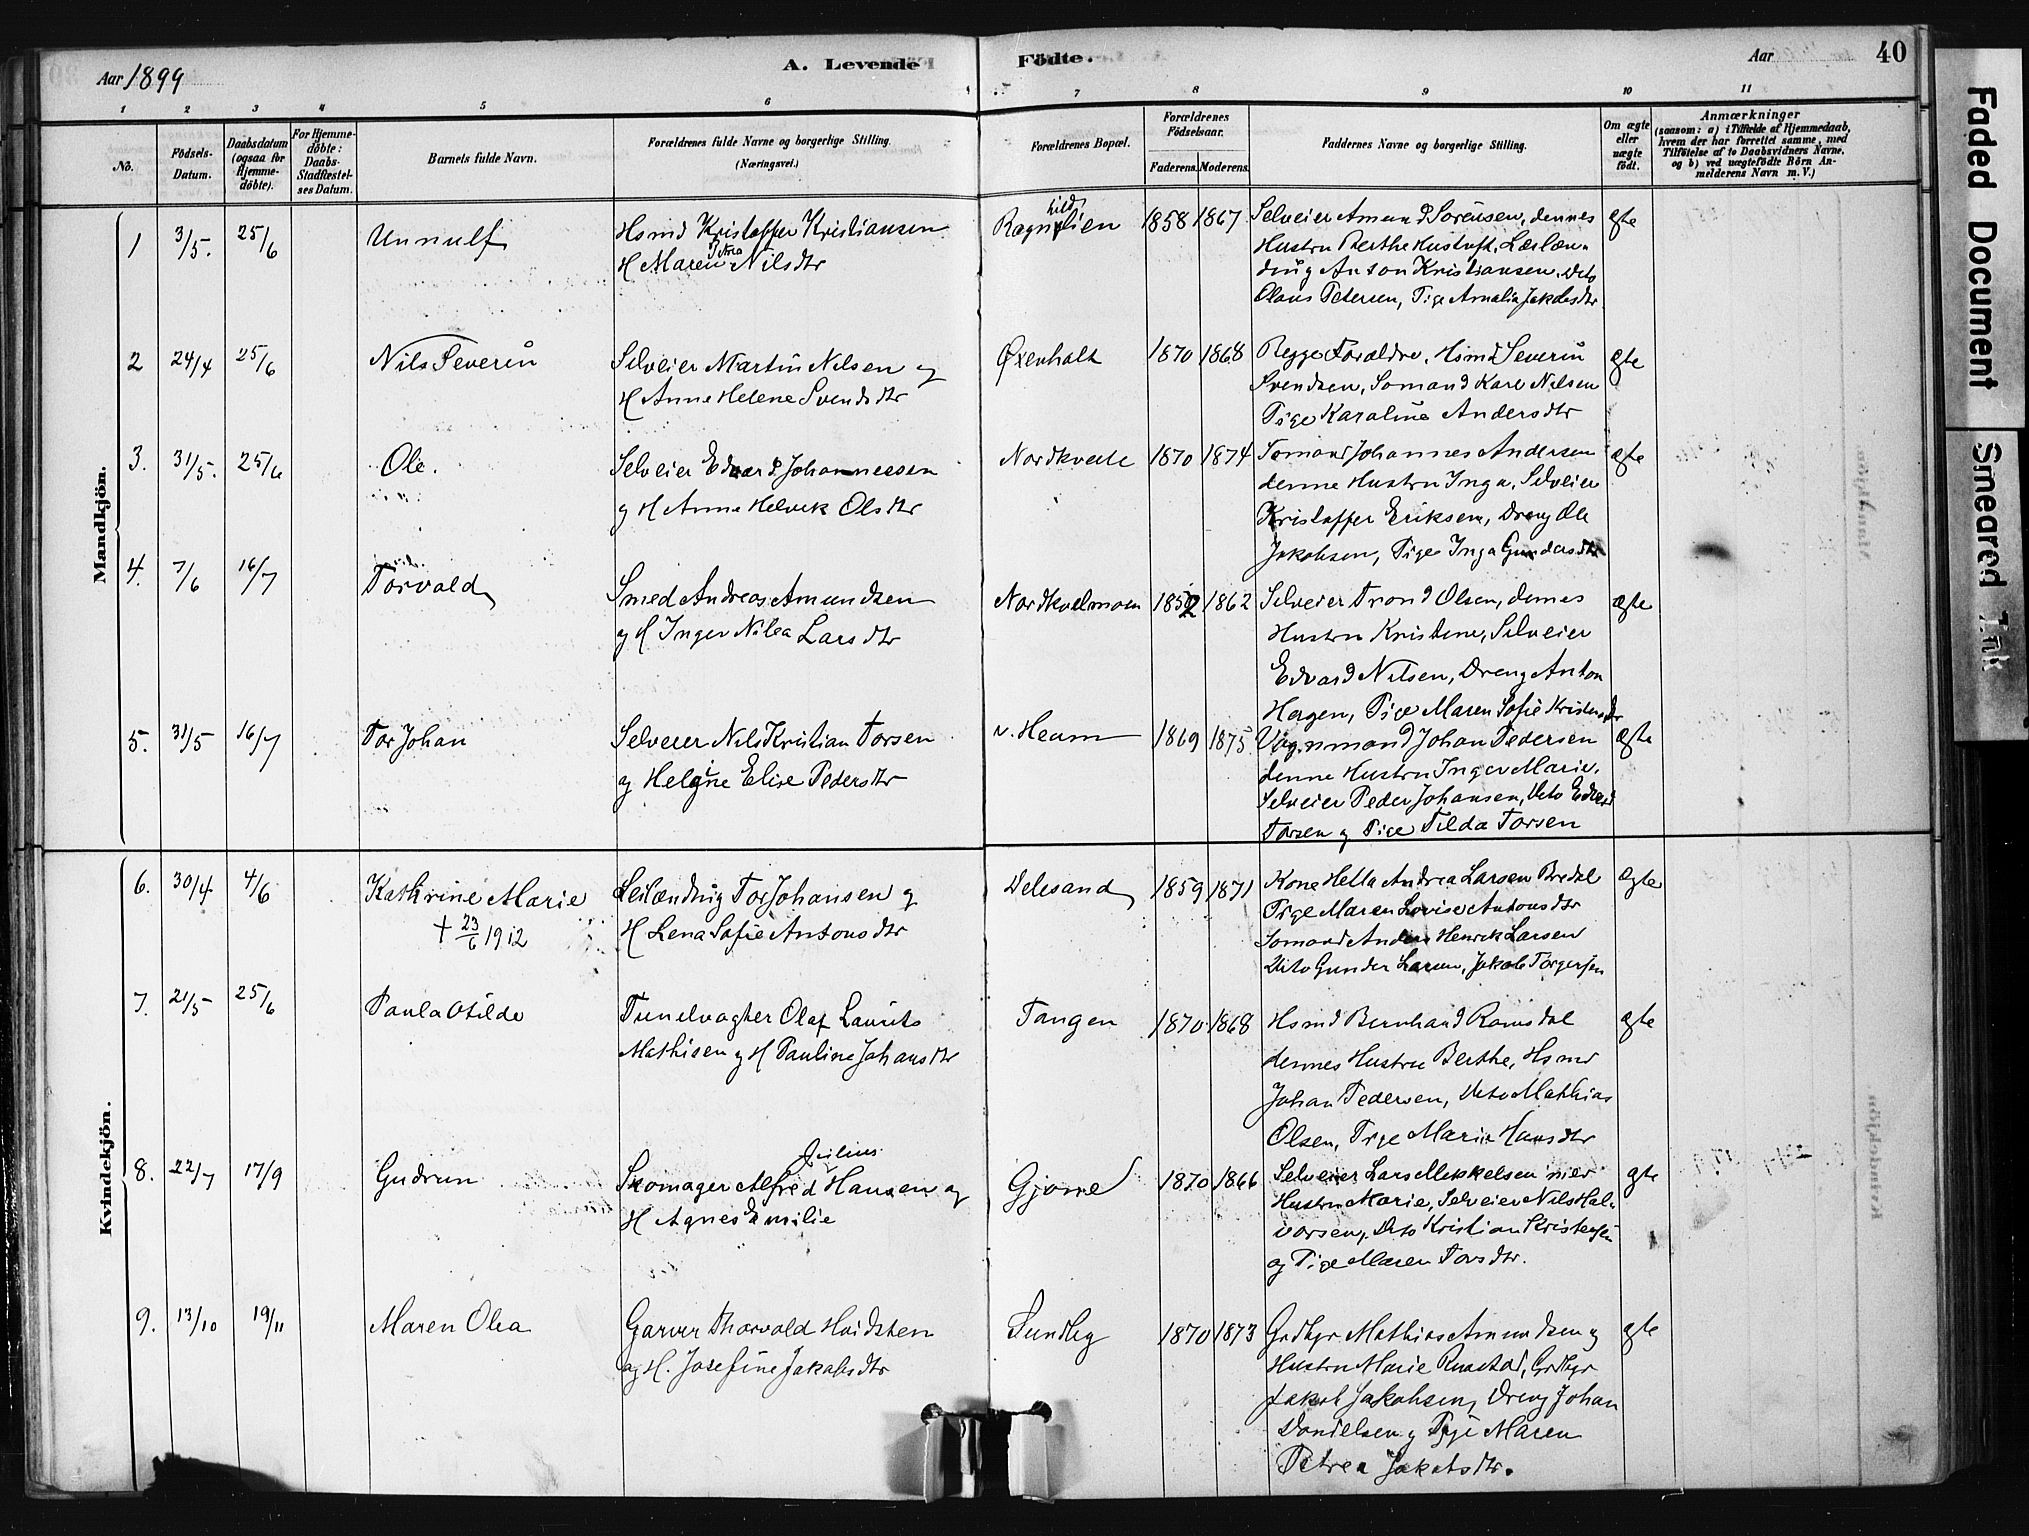 Aar 1899
A. Levende
Födte.
Aar
40
1 2 3 4 5 6 7 8 9 10 11
No.
Födsels-Datum.
Daabsdatum (ogsaa for Hjemme-döbte).
For Hjemme-döbte: Daabs-Stadfæstel-ses Datum.
Barnets fulde Navn.
Forældrenes fulde Navne og borgerlige Stilling. (Næringsvei.)
Forældrenes Bopæl.
Forældrenes Födselsaar.
Faderens. Moderens.
Faddernes Navne og borgerlige Stilling.
Om ægte eller uægte födt.
Anmærkninger
(saasom: a) i Tilfælde af Hjemmedaab,
hvem der har forrettet samme, med
Tilföielse af to Daabsvidners Navne,
og b) ved uægtefödte Börn An-
melderens Navn m. V.)
Mandkjön.
1 3/5. 25/6 Unnulf
Hsmd Kristoffer Kristiansen
H Maren Petrea Nilsdtr
Ragnhildlien 1858 1867
Selveier Amund Sørensen, dennes
Hustru Berthe Hustoft, Leilæn-
ding Anton Kristiansen, Dito
Olaus Petersen, Pige Amalia Jakobsdtr
ægte
2 24/4 25/6 Nils Severin
Selveier Martin Nilsen og
H Anne Helene Svendsdtr
Øxenholt 1870 1868
Begge Forældre, Hsmd Severin
Svendsen, Sømand Karl Nilsen
Pige Karoline Andersdtr
ægte
3. 31/5. 25/6 Ole.
Selveier Edvard Johannessen
og H Anne Helvik Olsdtr
Nordkveite 1870 1874
Sømand Johannes Andersen
denne Hustru Inga, Selveier
Kristoffer Eriksen, Dreng Ole
Jakobsen, Pige Inga Gundersdtr
ægte
4. 7/6 16/7 Torvald
Smed Andreas Amundsen
og H Inger Nilea Larsdtr
Nordkvelmoen 1852 1862
Selveier Trond Olsen, dennes
Hustru Kristine, Selveier
Edvard Nilsen, Dreng Anton
Hagen, Pige Maren Sofie Kristensdtr
ægte
5. 31/5 16/7 Tor Johan
Selveier Nils Kristian Torsen
og Helgine Elise Pedersdtr
v. Heum 1869 1875
Vognmand Johan Pedersen
denne Hustru Inger Marie,
Selveier Peder Johansen, Dito Edvard
Torsen og Pige Tilda Torsen
ægte
Kvindekjön.
6. 30/4 4/6 Kathrine Marie
† 23/6 1912
Leilænding Tor Johansen og
H Lena Sofie Antonsdtr
Delesand 1859 1871
Kone Hella Andrea Larsen Bredal
Pige Maren Lovise Antonsdtr
Sømand Anders Henrik Larsen
Dito Gunder Larsen, Jakob Torgersen
ægte
7. 21/5 25/6 Paula Otilde
Tunelvagter Olaf Laurits
Mathisen og H Pauline Johansdtr
Tangen 1870 1868
Hsmd Bernhard Ramsdal
dennes Hustru Berthe, Hsmd
Johan Pedersen, Dito Mathias
Olsen, Pige Marie Hansdtr
ægte
8. 22/7 17/9 Gudrun
Skomager Alfred Julius Hansen og
H Agnes Emilie
Gjerne 1870 1866
Selveier Lars Mikkelsen med
Hustru Marie, Selveier Nils Hal-
vorsen, Dito Kristian Kristensen
og Pige Maren Torsdtr.
ægte
9. 13/10 19/11 Maren Olea
Garver Thorvald Hvidsten
og H. Josefine Jakobsdtr
Sundby 1870 1873
Grdbgr Mathias Amundsen og
Hustru Marie Ruastad, Grdbgr
Jakob Jakobsen, Dreng Johan
Danielsen og Pige Maren
Petrea Jakobsdtr.
ægte
Faded Document
Smeared Ink